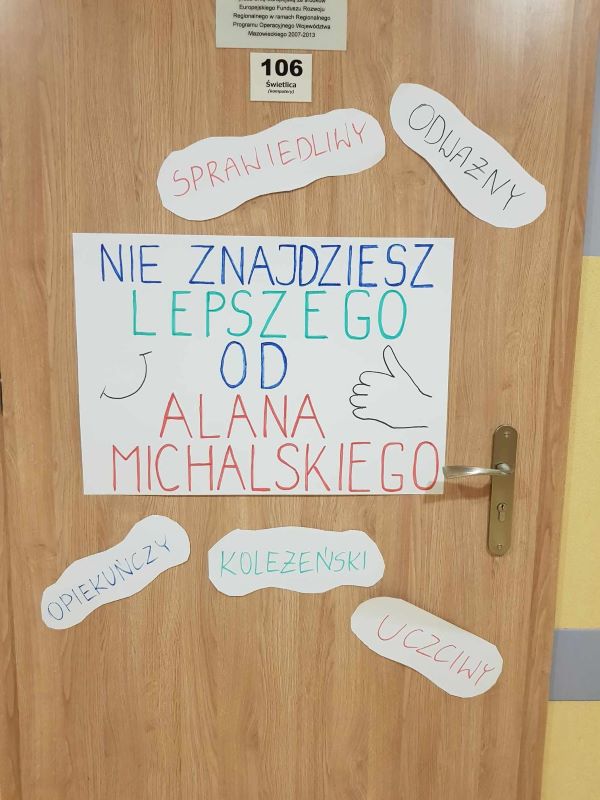 Europejskiego Funduszu Rozwoju
Regionalnego w ramach Regionalnego
Programu Operacyjnego Województwa
Mazowieckiego 2007-2013
106
Świetlica
(komputery)
SPRAWIEDLIWY
ODWAŻNY
NIE ZNAJDZIESZ
LEPSZEGO
OD
ALANA
MICHALSKIEGO
OPIEKUŃCZY
KOLEŻEŃSKI
UCZCIWY